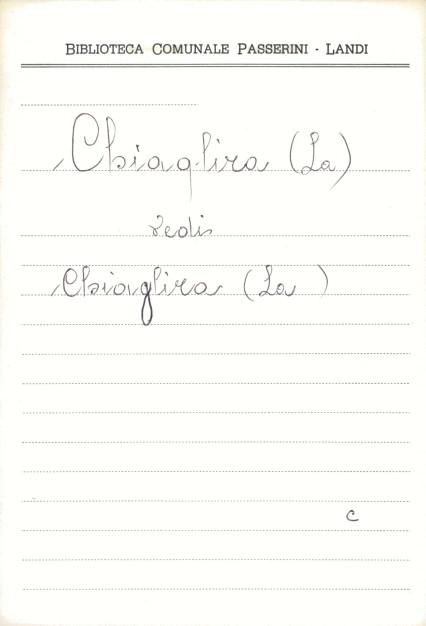 BIBLIOTECA COMUNALE PASSERINI - LANDI
Chiaqlira (La)
vedi
Chiaglira (La )
c